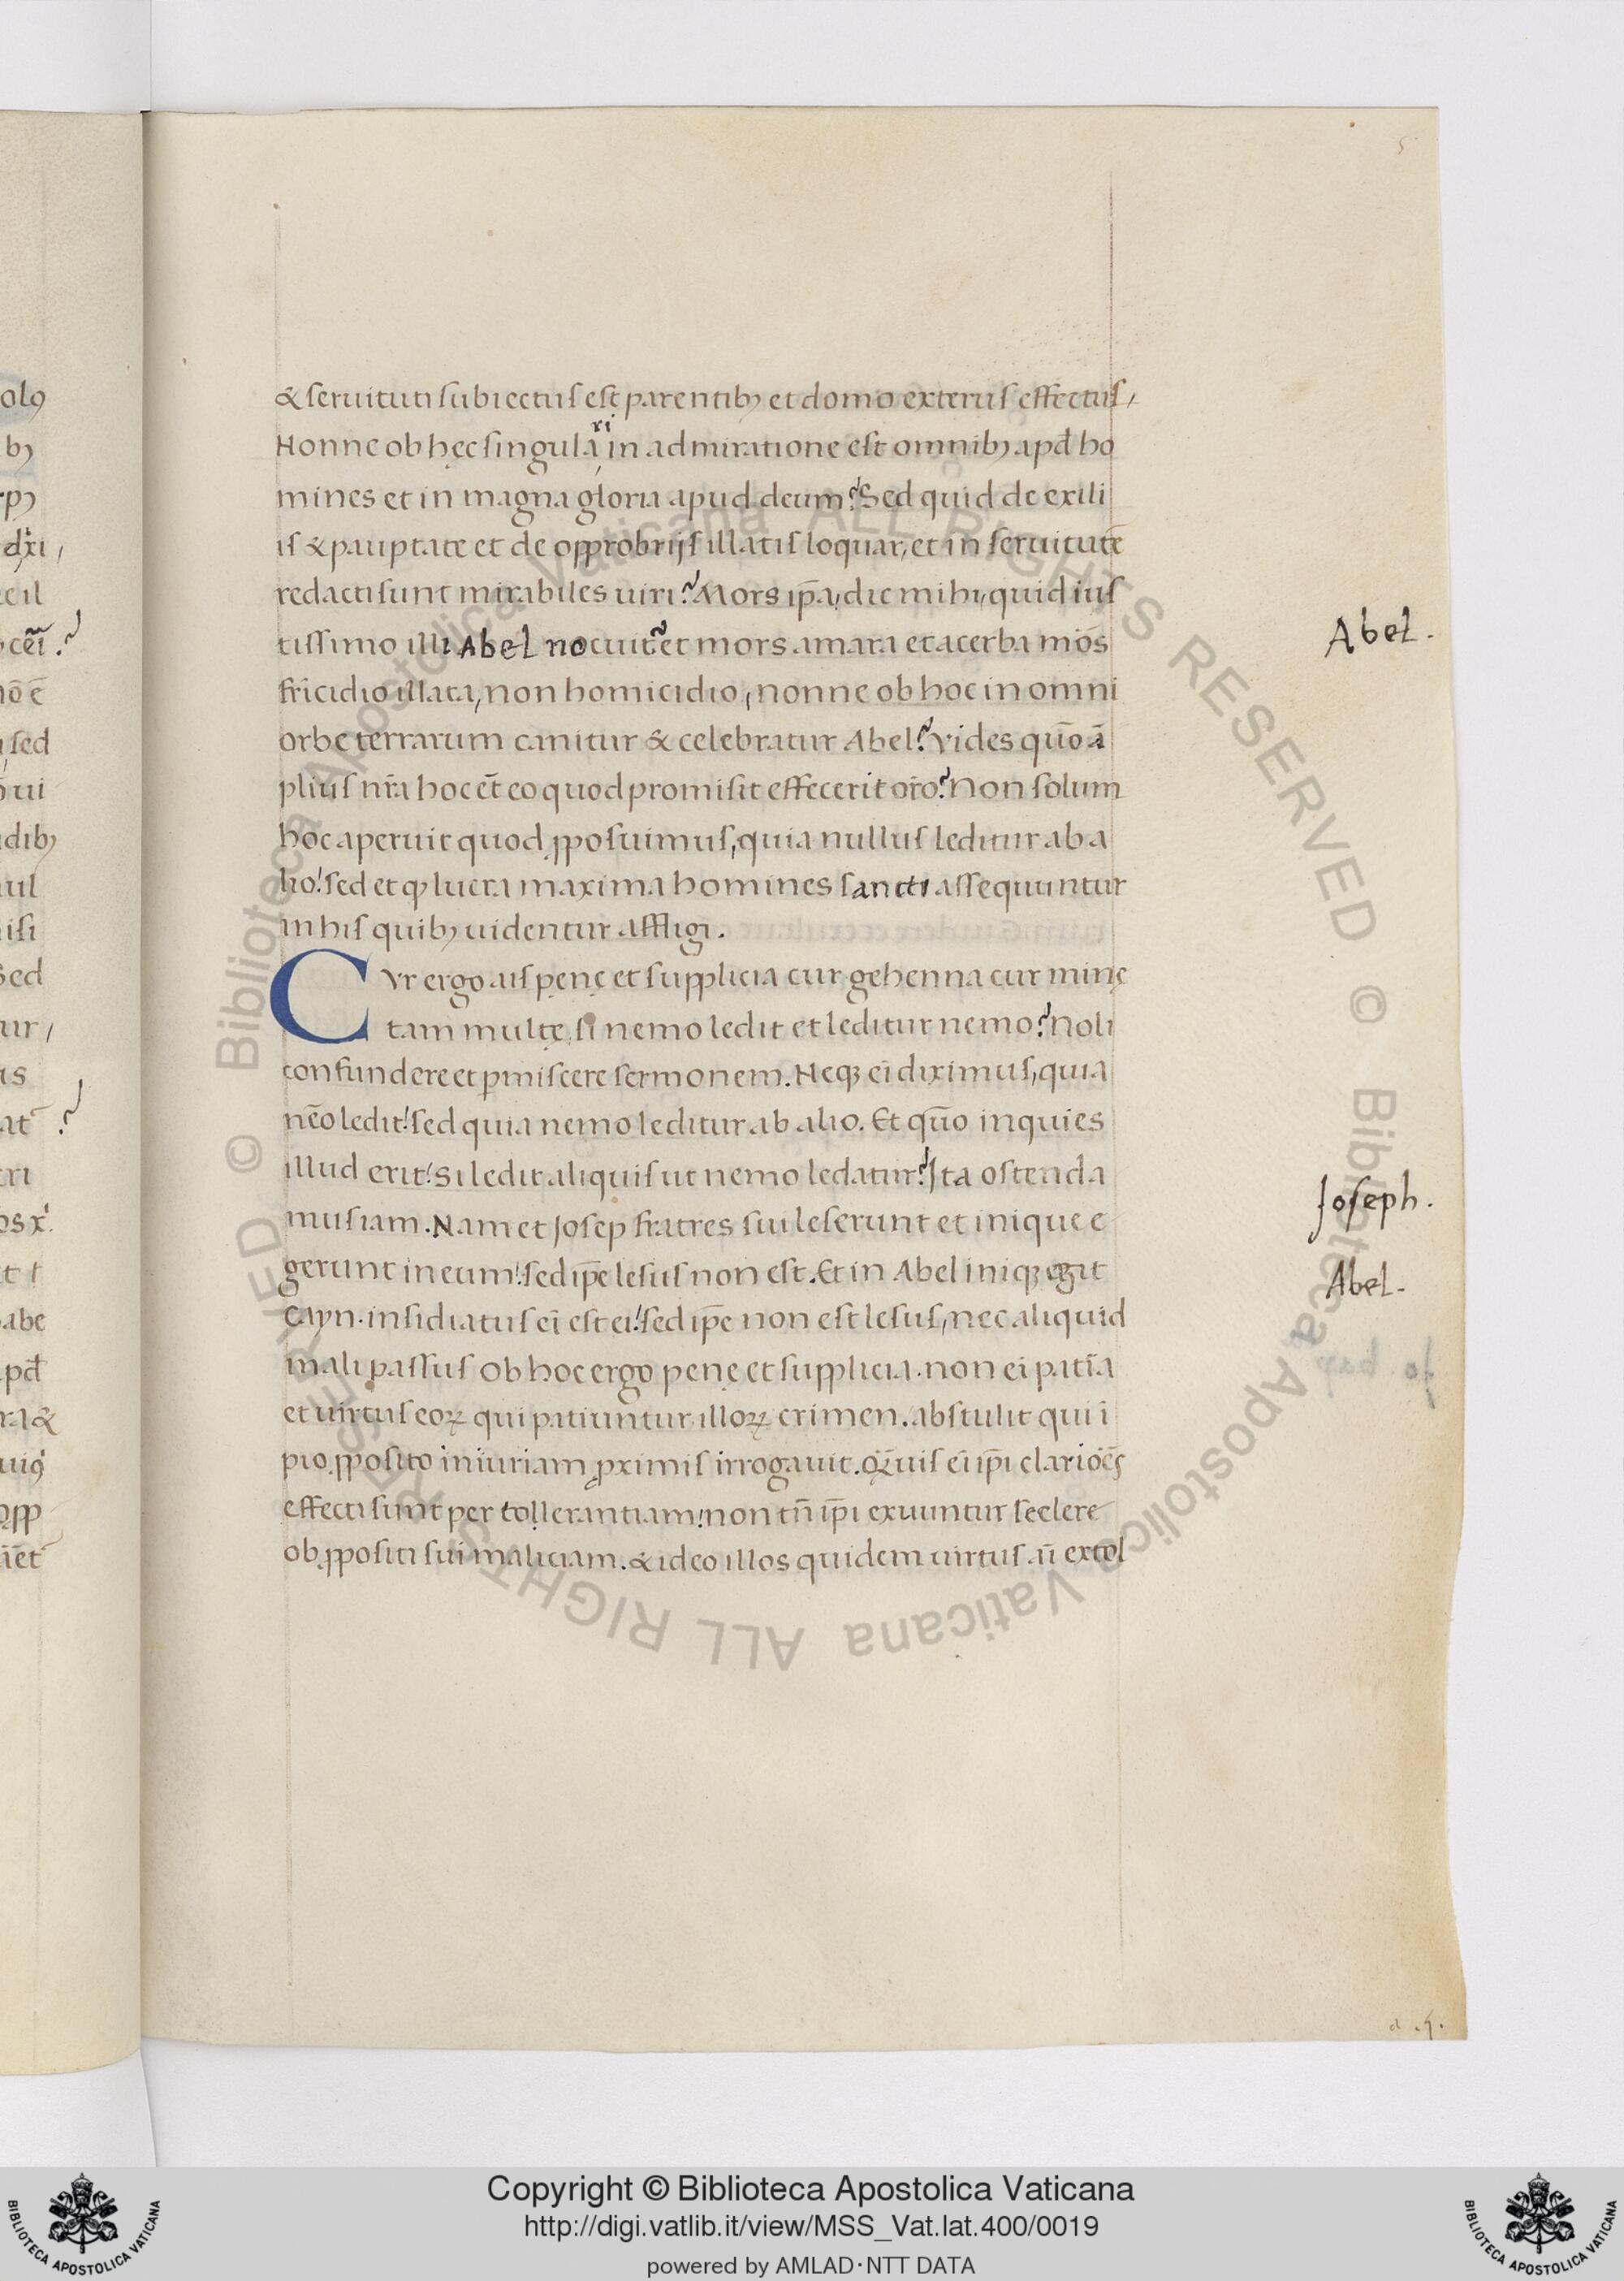 5
& seruituti subiectus est parentibꝫ et domo exterus effectus,
Nonne ob hęc singulari in admiratione est omnibꝫ apd̄ ho
mines et in magna gloria apud deum? Sed quid de exili
is & paupꝑtate et de opprobrijs illatis loquar, et in seruitutē
redacti sunt mirabiles uiri? Mors ip̄a, dic mihi, quid ius
tissimo illi Abel nocuit? et mors amara et acerba mō̄s
fr̄icidio illata, non homicidio, nonne ob hoc in omni
orbe terrarum canitur & celebratur Abel? Vides quō ā
plius nr̄a hoc ēt eo quod promisit effecerit orō? Non solum
hoc aperuit quod ꝓposuimus, quia nullus leditur ab a
lio! sed et ꝙ lucra maxima homines sancti assequuntur
in his quibꝫ uidentur affligi.
CVr ergo ais penę et supplicia cur gehenna cur minę
tam multę, si nemo ledit et leditur nemo? Noli
confundere et ꝑmiscere sermonem. Neqꝫ ei diximus, quia
nēo ledit! sed quia nemo leditur ab alio. Et quō inquies
illud erit! si ledit aliquis ut nemo ledatur? Ita ostenda
mus iam. Nam et Josep fratres sui leserunt et inique e
gerunt in eum! sed ip̄e lesus non est. Et in Abel iniqꝫ egit
Cayn. insidiatus ei est ei! sed ip̄e non est lesus, nec aliquid
mali passus Ob hoc ergo penę et supplicia. non ei patīa
et uirtus eoꝝ qui patiuntur illoꝝ crimen. abstulit qui ī
pio ꝓposito iniuriam ꝓximis irrogauit. Q̄uis ei ip̄i clariōēs
effecti sunt per tollerantiam! non tn̄ ip̄i exuuntur scelere
ob ꝓpositi sui maliciam. & ideo illos quidem uirtus ū extol
Abel.
Joseph.
Abel.
Copyright © Biblioteca Apostolica Vaticana
http://digi.vatlib.it/view/MSS_Vat.lat.400/0019
powered by AMLAD·NTT DATA
© Biblioteca Apostolica Vaticana ALL RIGHTS RESERVED © Biblioteca Apostolica Vaticana ALL RIGHTS RESERVED
BIBLIOTECA APOSTOLICA VATICANA
BIBLIOTECA APOSTOLICA VATICANA